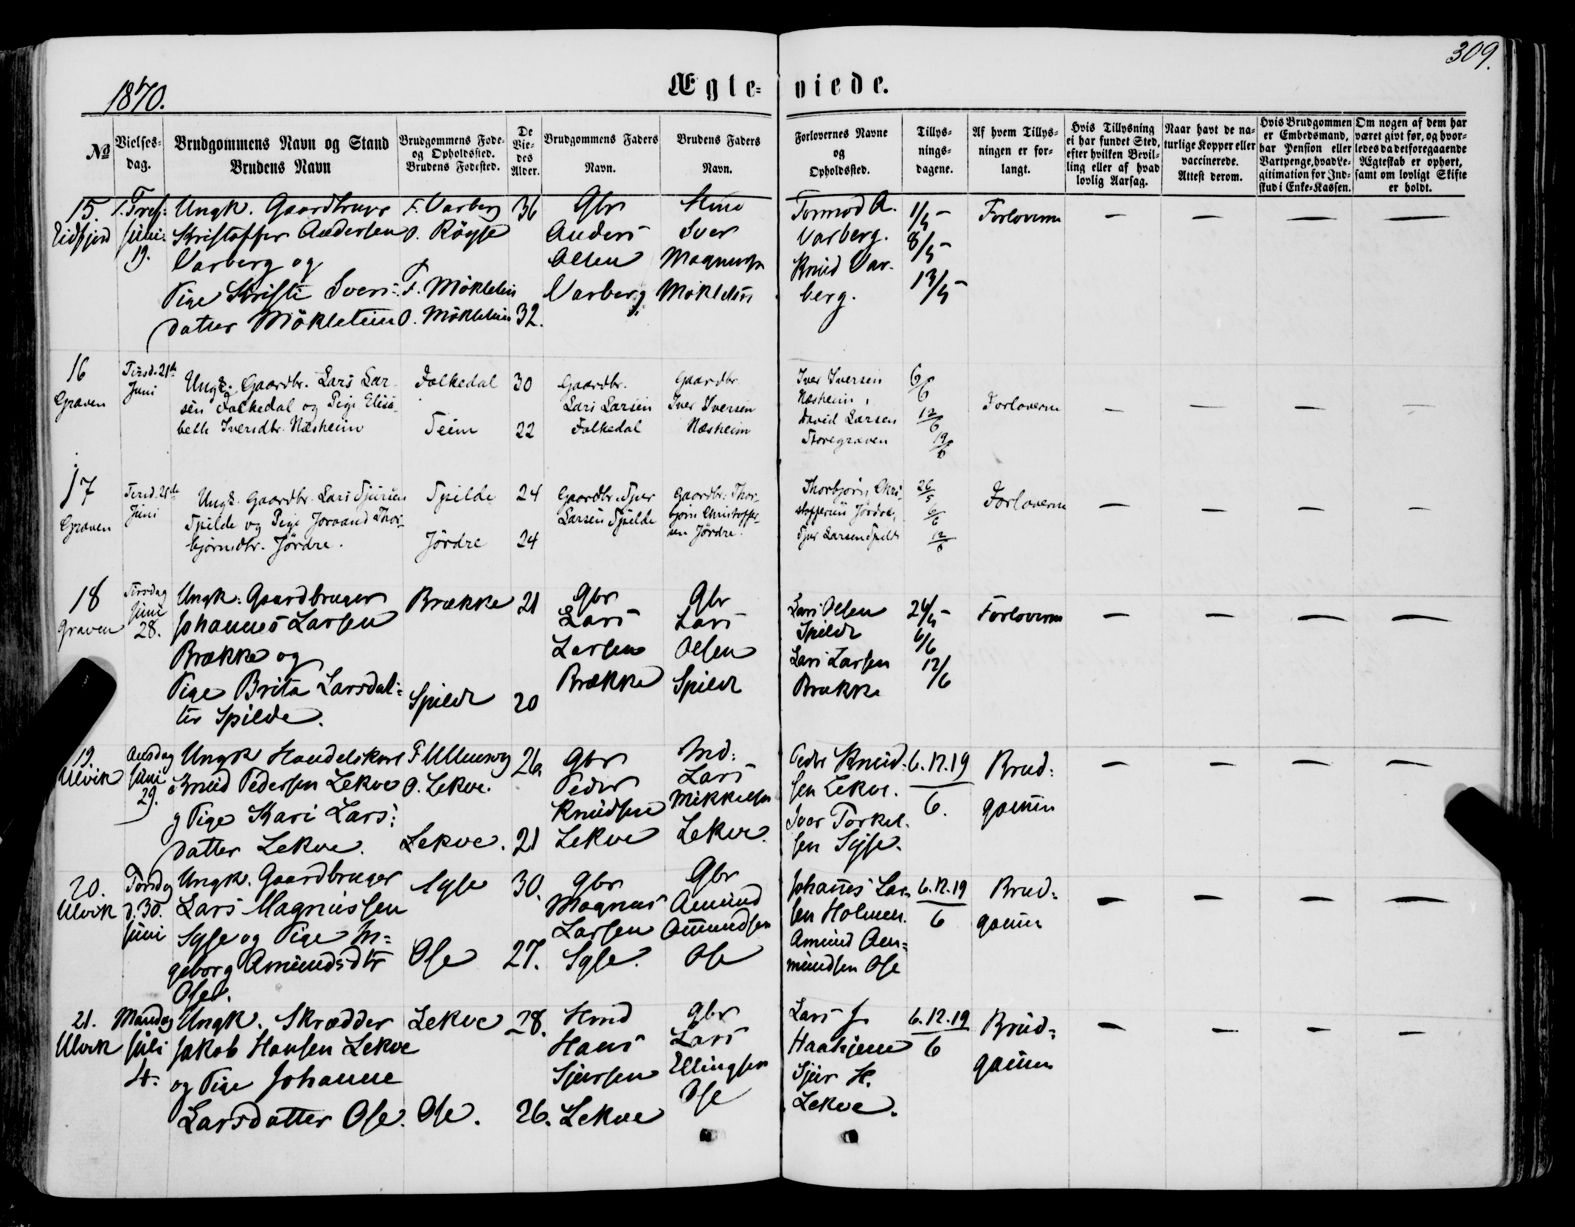 309.
1870.
Ægte= viede.
№
Vielses-
dag.
Brudgommens Navn og Stand
Brudens Navn
Brudgommens Føde-
og Opholdssted.
Brudens Fødested.
De
Vie-
des
Alder.
Brudgommens Faders
Navn.
Brudens Faders
Navn.
Forlovernes Navne
og
Opholdssted.
Tillys-
nings-
dagene.
Af hvem Tillys-
ningen er for-
langt.
Hvis Tillysning
ei har fundet Sted,
efter hvilken Bevil-
ling eller af hvad
lovlig Aarsag.
Naar havt de na-
turlige Kopper eller
vaccinerede.
Attest derom.
Hvis Brudgommen
er Embedsmand,
har Pension eller
Vartpenge, hvad Le-
gitimation for Ind-
skud i Enke-Kassen.
Om nogen af dem har
været givt før, og hvor-
ledes da det foregaaende
Ægteskab er ophørt,
samt om lovligt Skifte
er holdt.
15.
Eidfjord
Juni
19.
Ungk. Gaardbruger
Kristoffer Andersen
Varberg og
Pige Kristi Ivers:
datter Mökletun
F. Varberg
O. Røyse
F. Mökletun
O. Mökletun
36
32.
Gbr
Anders
Olsen
Varberg
Iver
Magnus
Mökletun
Tormod A.
Varberg.
Knud Var-
berg.
1/5 –
8/5 –
Forloverne
– – – –
16
Graven
Tirsd. 21de
Juni
Ungk. Gaardbr. Lars Lar-
sen Folkedal og Pige Elisa-
beth Iversdtr. Næsheim
Folkedal
Seim
30
22
Gaardbr.
Lars Larsen
Folkedal
Gaardbr
Iver Iversen
Næsheim
Iver Iversen
Næsheim,
David Larsen
Storegraven
6/6
12/6
19/6
Forloverne
– – – –
17
Graven
Tirsd. 21de
Juni
Ungk. Gaardbr. Lars Sjursen
Spilde og Pige Joraand Thor-
bjørnsdtr. Jørdre.
Spilde
Jørdre
24
24
Gaardbr. Sjur
Larsen Spilde
Gaardbr. Thor-
bjørn Christoffer-
sen Jørdre.
Thorbjørn Chri-
stoffersen Jørdre,
Sjur Larsen Spilde
26/5
6/6
12/6
Forloverne
– – – –
18
Graven
Tirsdag
Juni
28.
Ungk. Gaardbruger
Johannes Larsen
Brække og
Pige Brita Larsdat=
ter Spilde.
Brække
Spilde
21
20
Gbr
Lars
Larsen
Brække
Gbr
Lars
Olsen
Spilde
Lars Olsen
Spilde
Lars Larsen
Brække
24/5 –
6/6
12/6
Forloverne
– – – –
19.
Ulvik
Onsdag
Juni
29.
Ungk Handelskarl
Knud Pedersen Lekve
og Pige Kari Lars:
datter Lekve.
F. Ullensvg
O. Lekve.
Lekve.
26
21
Gbr
Peder
Knudsen
Lekve
Ind:
Lars
Mikkelsen
Lekve.
Peder Knud:
sen Lekve.
Iver Torkel-
sen Syse.
6.12.19
6.
Brud:
gommen
– – – –
20.
Ulvik
Torsdag
d. 30.
Juni
Ungk. Gaardbruger
Lars Magnussen
Syse og Pige In=
geborg Amundsdtr
Ose.
Syse
Ose
30.
27.
Gbr
Magnus
Larsen
Syse.
Gbr
Amund
Amundsen
Ose
Johannes Lar-
sen Holmen.
Amund Am=
mundsen Ose
6.12.19
6
Brud=
gommen
– – – –
21.
Ulvik
Mandag
Juli
4.
Ungk. Skrædder
Jakob Hansen Lekve
og Pige Johanne
Larsdatter Ose.
Lekve
Ose.
28.
26.
Hmd
Hans
Sjursen
Lekve
Gbr
Lars
Ellingsen
Ose
Lars J.
Haahjem
Sjur H.
Lekve.
6.12.19
6
Brud=
gommen
– – – –